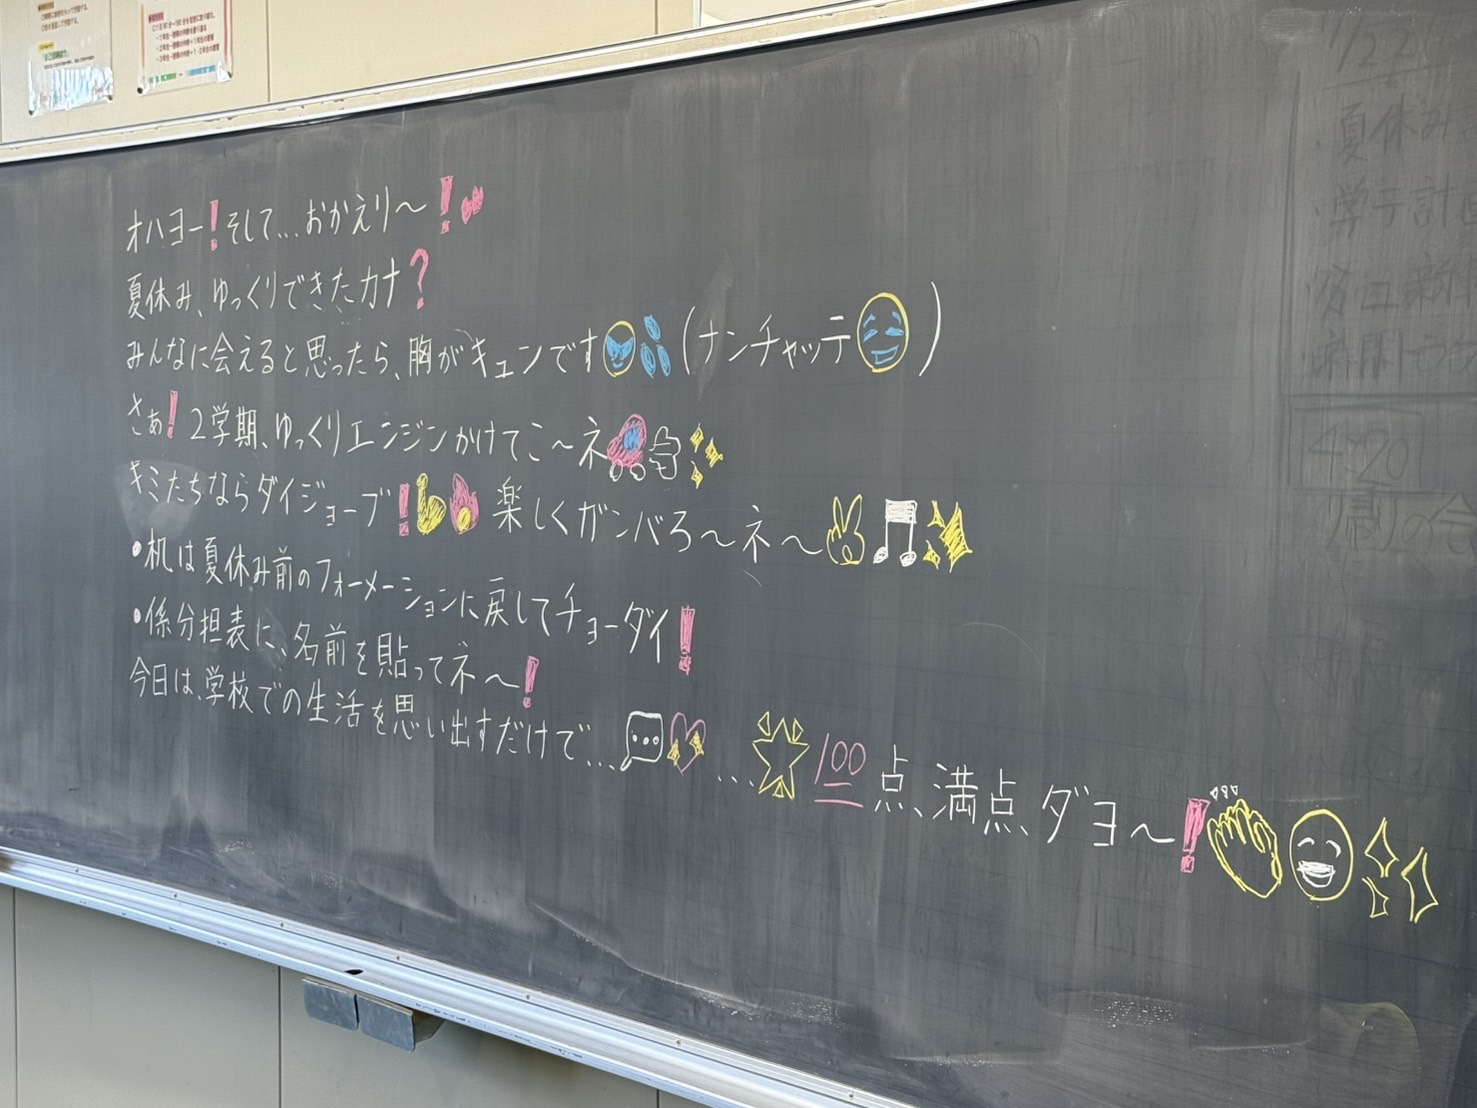 オハヨー！そして…おかえり〜！
夏休み、ゆっくりできたカナ？
みんなに会えると思ったら、胸がキュンです（ナンチャッテ）
さぁ！2学期、ゆっくりエンジンかけてこ〜ネ
キミたちならダイジョーブ！楽しくガンバろ〜ネ〜
・机は夏休み前のフォーメーションに戻してチョーダイ！
・係分担表に、名前を貼ってネ〜！
今日は、学校での生活を思い出すだけで……100点、満点、ダヨ〜！
夏休み
学テ
4:20
帰りの会